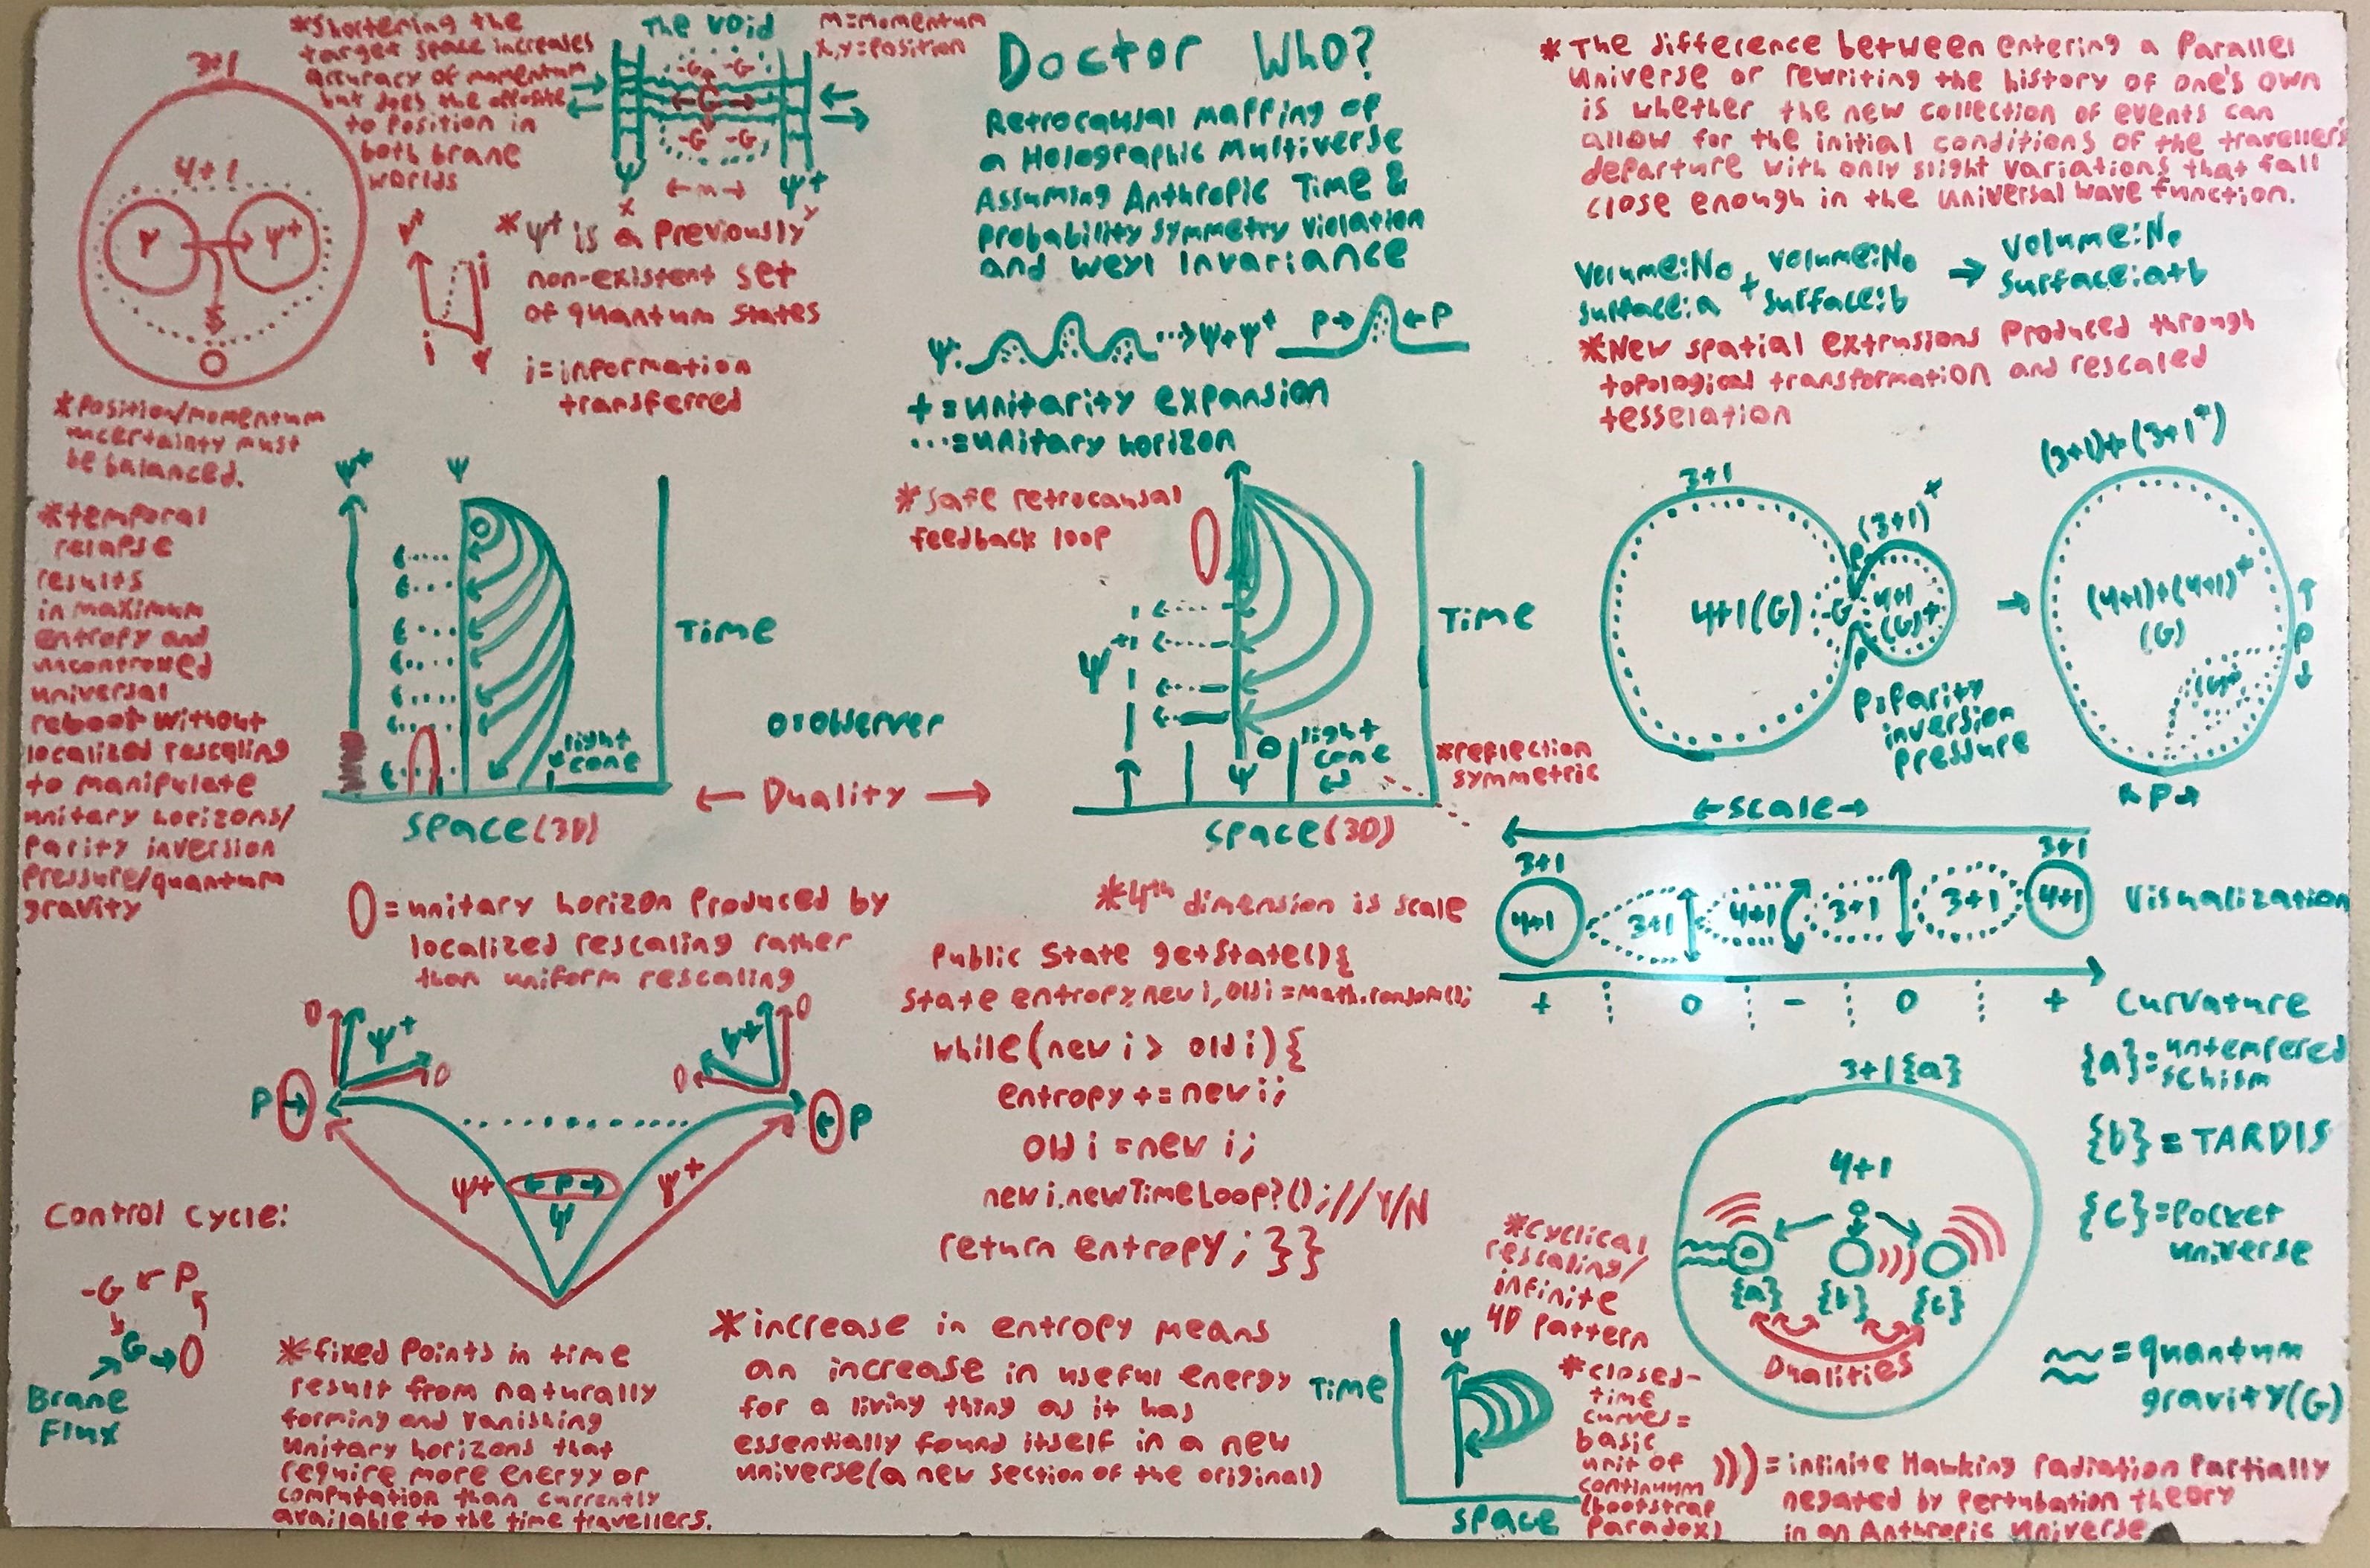 *Shortening the
target space increases
accuracy of momentum
but does the opposite
to position in
both brane
worlds
3+1
4+1
Ψ
Ψ+
O
The Void
-G -G
G
-G -G
Ψ
Ψ+
← m →
x
y
m=momentum
x,y=position
Ψ+
i
i
Ψ
*Ψ+ is a previously
non-existent set
of quantum states
i=information
transferred
*Position/momentum
uncertainty must
be balanced.
Doctor Who?
Retrocausal mapping of
a Holographic Multiverse
Assuming Anthropic Time &
Probability Symmetry Violation
and Weyl Invariance
Ψ:
...→Ψ+Ψ+
P→ ←P
+=unitarity expansion
...=unitary horizon
*The difference between entering a Parallel
Universe or rewriting the history of one's own
is whether the new collection of events can
allow for the initial conditions of the traveller's
departure with only slight variations that fall
close enough in the universal wave function.
Volume:No + Volume:No → Volume:No
Surface:a Surface:b Surface:a+b
*New spatial extrusions produced through
topological transformation and rescaled
tesselation
*temporal
relapse
results
in maximum
entropy and
uncontrolled
universal
reboot without
localized rescaling
to manipulate
unitary horizons/
parity inversion
pressure/quantum
gravity
Ψ+
Ψ
O
Time
light
cone
Space(3D)
O=Observer
← Duality →
*Safe retrocausal
feedback loop
Ψ+
Ψ
O
light
cone
Time
Space(3D)
*reflection
symmetric
3+1
4+1(G)
-G
P
P
(3+1)+
4+1
(G)+
→
(3+1)+(3+1+)
(4+1)+(4+1)+
(G)
(G)+
↑
P
↓
←P→
P=Parity
inversion
pressure
←Scale→
3+1
3+1
4+1
3+1
4+1
3+1
3+1
4+1
Visualization
+
0
-
0
+
Curvature
0=unitary horizon produced by
localized rescaling rather
than uniform rescaling
*4th dimension is scale
Public State getState(){
State entropy,new i,old i=Math.random();
while(new i > old i){
entropy += new i;
old i = new i;
new i.newTimeLoop?();//Y/N
return entropy; }}
0
Ψ+
0
Ψ+
0
0
P→
←P
Ψ+
←P→
Ψ
Ψ+
Control Cycle:
-G
P
G
0
Brane
Flux
*fixed points in time
result from naturally
forming and vanishing
unitary horizons that
require more energy or
computation than currently
available to the time travellers.
*increase in entropy means
an increase in useful energy
for a living thing as it has
essentially found itself in a new
universe(a new section of the original)
*cyclical
rescaling/
infinite
4D pattern
Time
Ψ
Space
*closed-
time
curves=
basic
unit of
continuum
(bootstrap
Paradox)
3+1{a}
4+1
{a}
{b}
{c}
Dualities
{a}=untempered
schism
{b}=TARDIS
{c}=pocket
universe
=quantum
gravity(G)
)))=infinite Hawking radiation partially
negated by pertubation theory
in an Anthropic universe